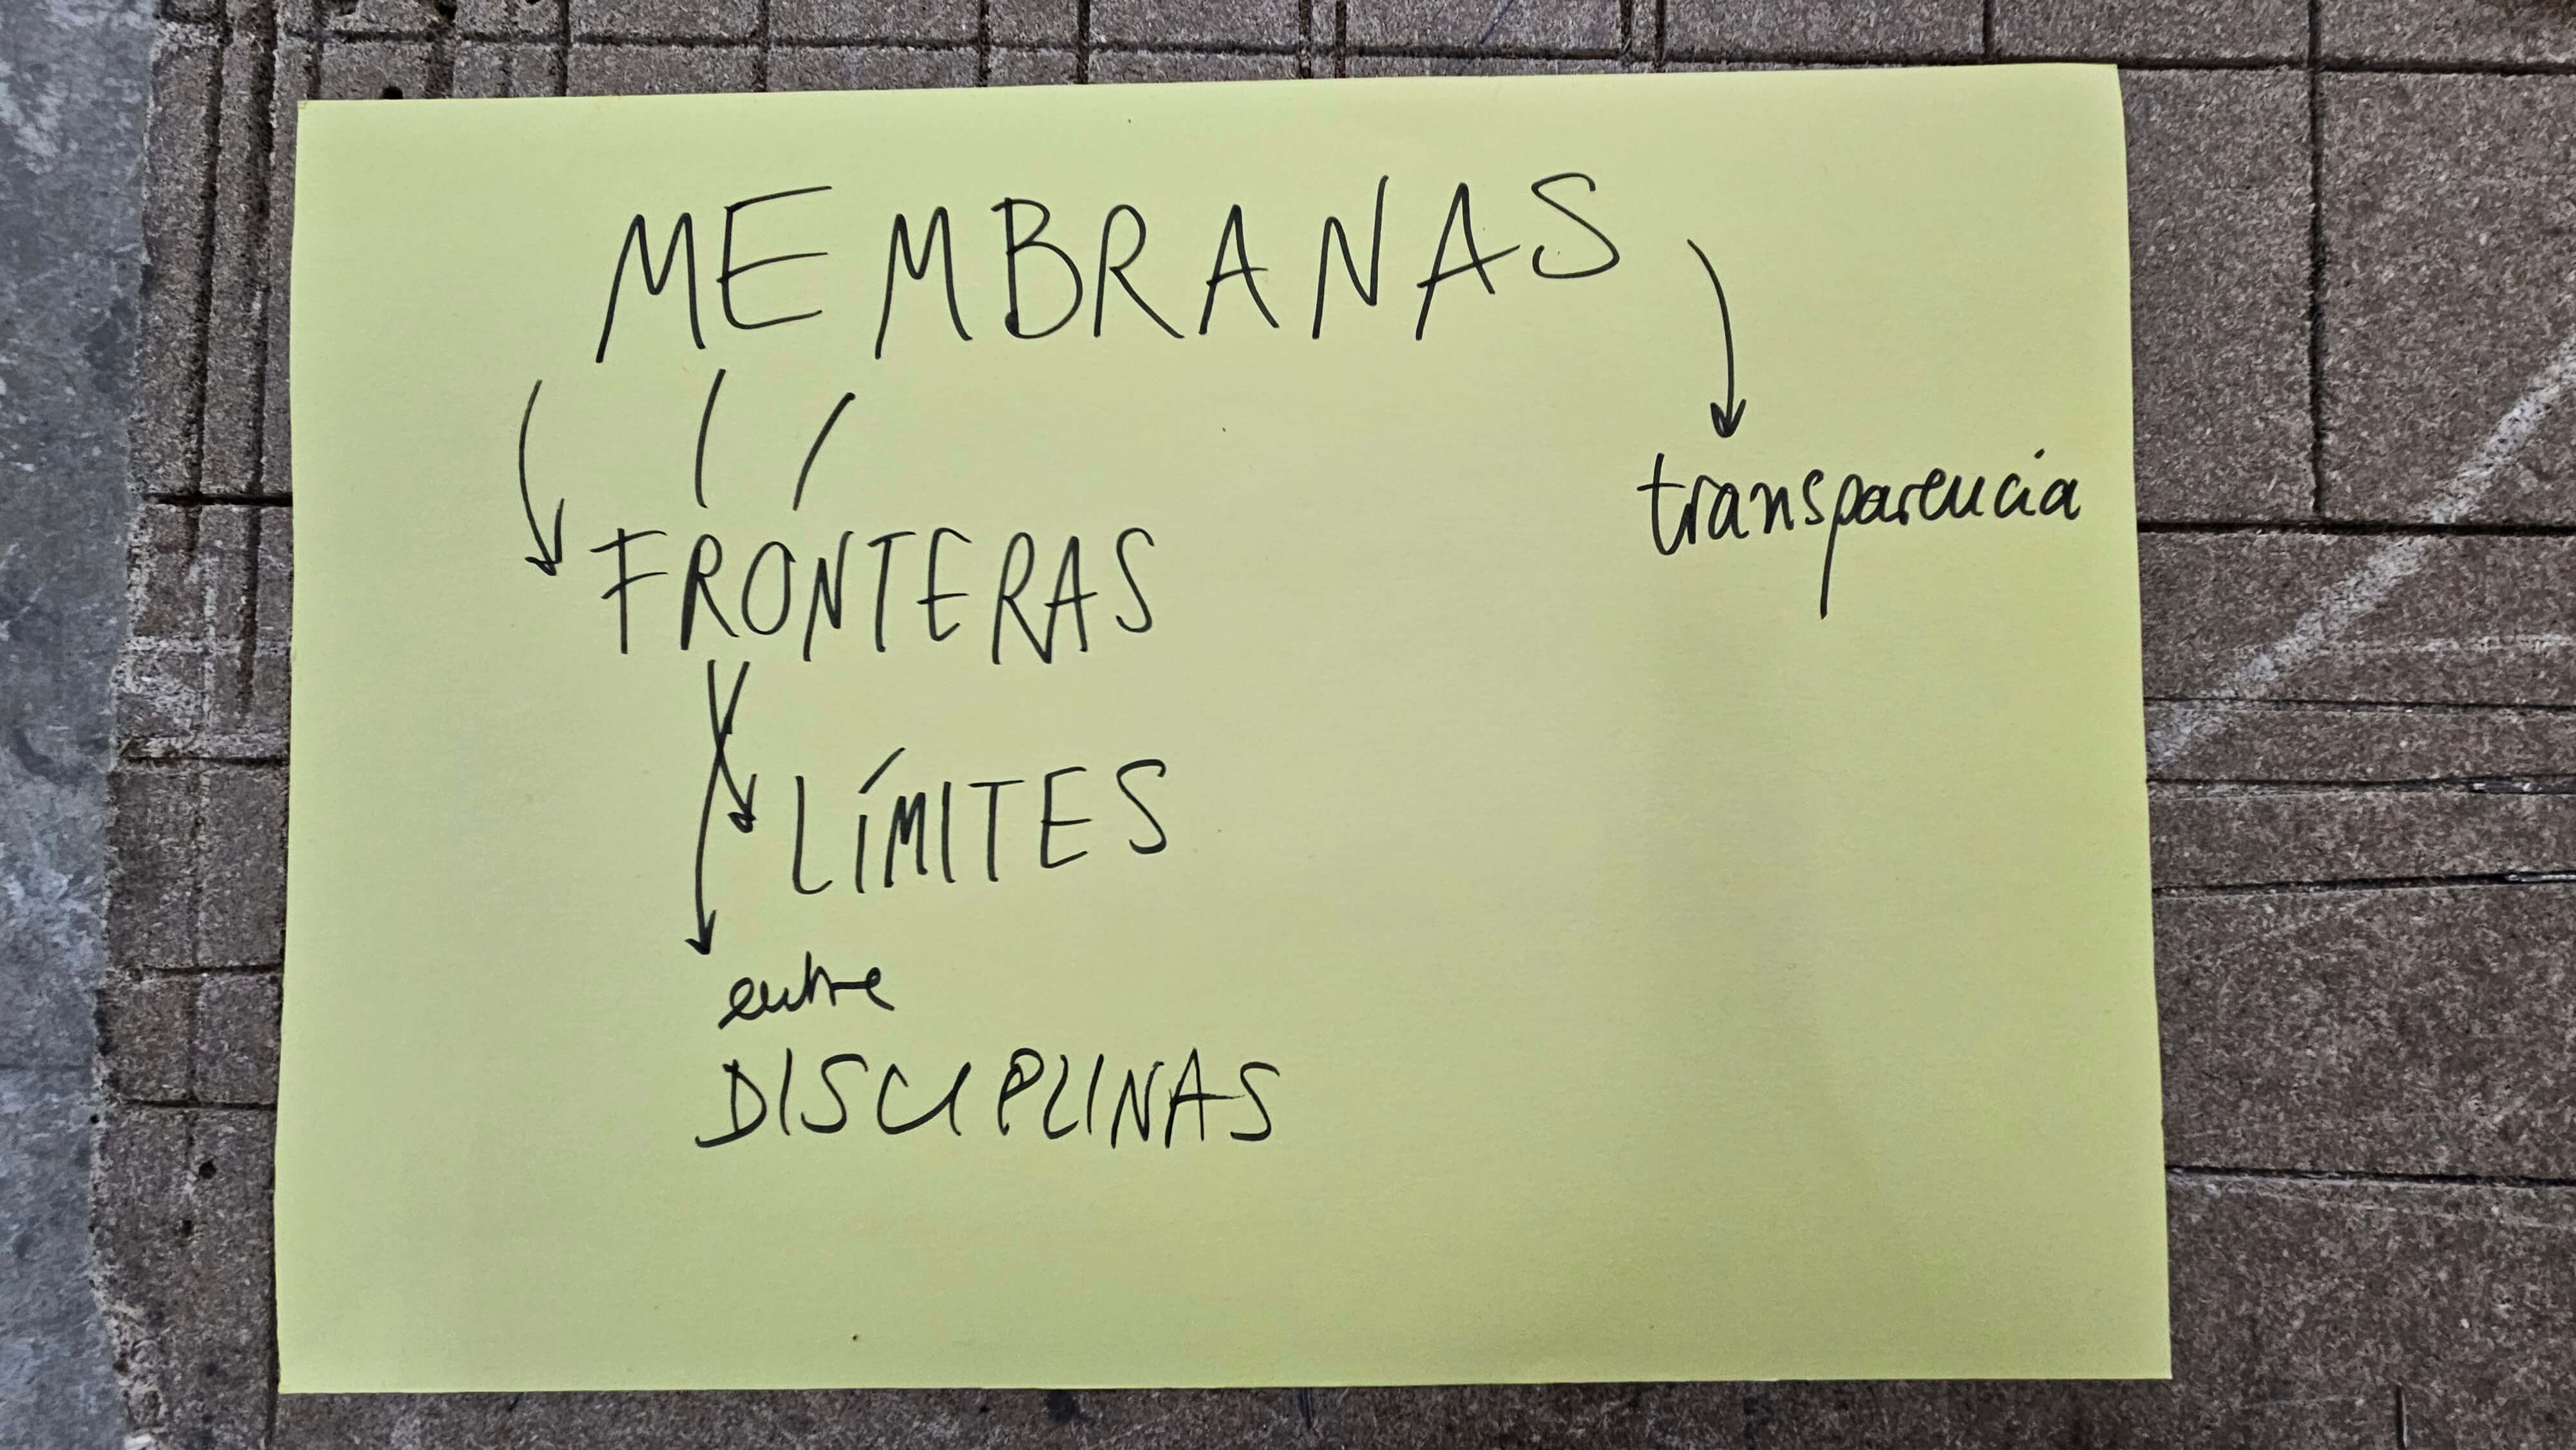 MEMBRANAS
transparencia
FRONTERAS
LÍMITES
entre
DISCIPLINAS